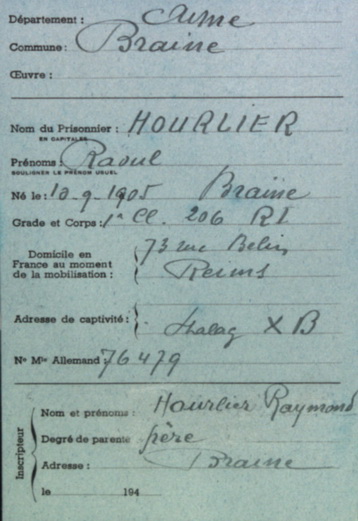 Département : Aisne
Commune : Braine
Œuvre :
Nom du Prisonnier : HOURLIER
EN CAPITALES
Prénoms : Raoul
SOULIGNER LE PRÉNOM USUEL
Né le : 10-9-1905 Braine
Grade et Corps : 1e Cl. 206 RI
Domicile en France au moment de la mobilisation : 73 rue Belin
Reims
Adresse de captivité : Stalag X B
No Mle Allemand : 76479
Inscripteur
Nom et prénoms : Hourlier Raymond
Degré de parenté frère
Adresse : Braine
le 194